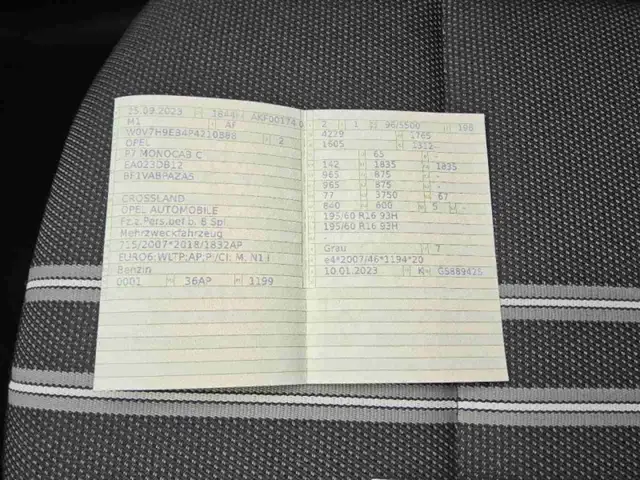 25.09.2023 1844 AKF00174 0
M1 AF
W0V7H9EB4P4210888 2
OPEL
P7 MONOCAB C
EA023DB12
BF1VABPAZA5
CROSSLAND
OPEL AUTOMOBILE
Fz.z.Pers.bef.b. 8 Spl.
Mehrzweckfahrzeug
715/2007*2018/1832AP
EURO6;WLTP;AP;P/CI; M, N1 I
Benzin
0001 36AP 1199
2 1 96/5500 198
4229 1765
1605 1312-
65 -
142 1835 1835
965 875 -
965 875 -
77 3750 67
840 600 5 -
195/60 R16 93H
195/60 R16 93H
-
Grau 7
e4*2007/46*1194*20
10.01.2023 K GS889425